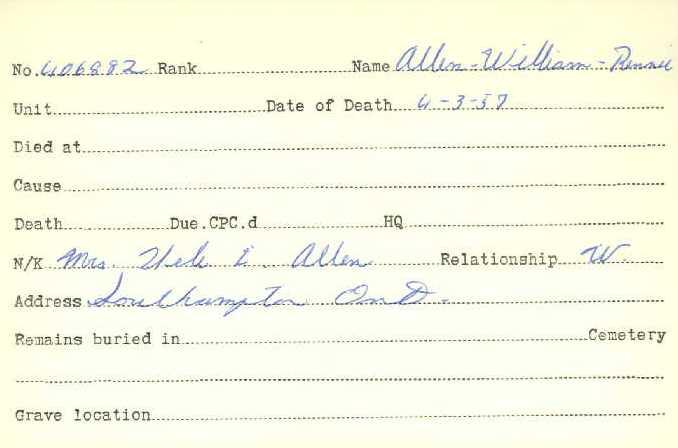 No. 406882 Rank Name Allen - William - Rennie
Unit Date of Death 4-3-57
Died at
Cause
Death Due.CPC.d HQ
N/K Mrs. E. Allen Relationship W.
Address Southampton Ont.
Remains buried in Cemetery
Grave location